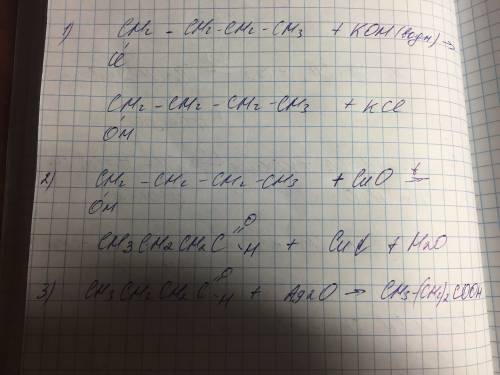 1) CH2 - CH2-CH2-CH3 + KOH (водн) →
Cl
CH2-CH2-CH2-CH3 + KCl
OH
2) CH2-CH2-CH2-CH3 + CuO t→
OH
CH3CH2CH2C=O-H + Cu↓ + H2O
3) CH3CH2CH2C=O-H + Ag2O → CH3-(CH2)2COOH